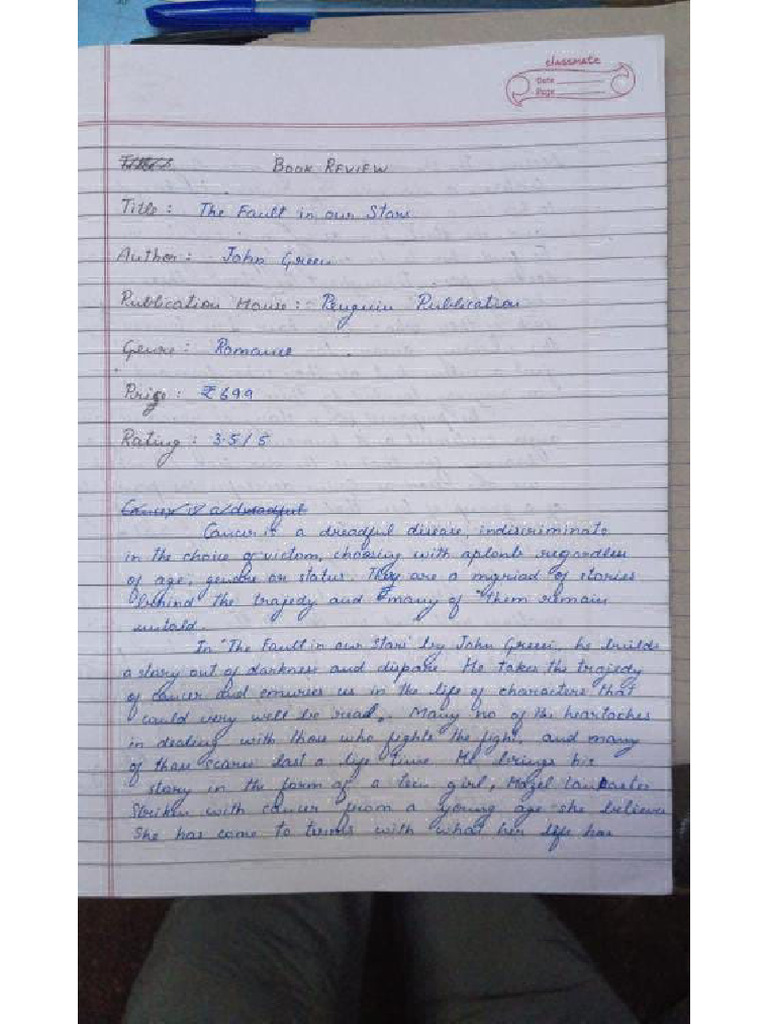 classmate
Date
Page
BOOK REVIEW
Title : The Fault in our Stars
Author : John Green
Publication House : Penguin Publication
Genre : Romance
Prize : ₹ 699
Rating : 3.5/5
Cancer is a dreadful
Cancer is a dreadful disease, indiscriminate
in the choice of victom, choosing with aplomb regardless
of age, gender or status. They are a myriad of stories
behind the tragedy and many of them remain
untold.
In "The Fault in our Stars" by John Green, he builds
a story out of darkness and dispare. He takes the tragedy
of cancer and us in the life of characters that
could very well be read. Many no of the heartaches
in dealing with those who fights the fight, and many
of those scares last a life time. He brings his
story in the form of a teen girl, Hazel Lancaster
Striken with cancer from a young age she believe
She has come to terms with what her life has